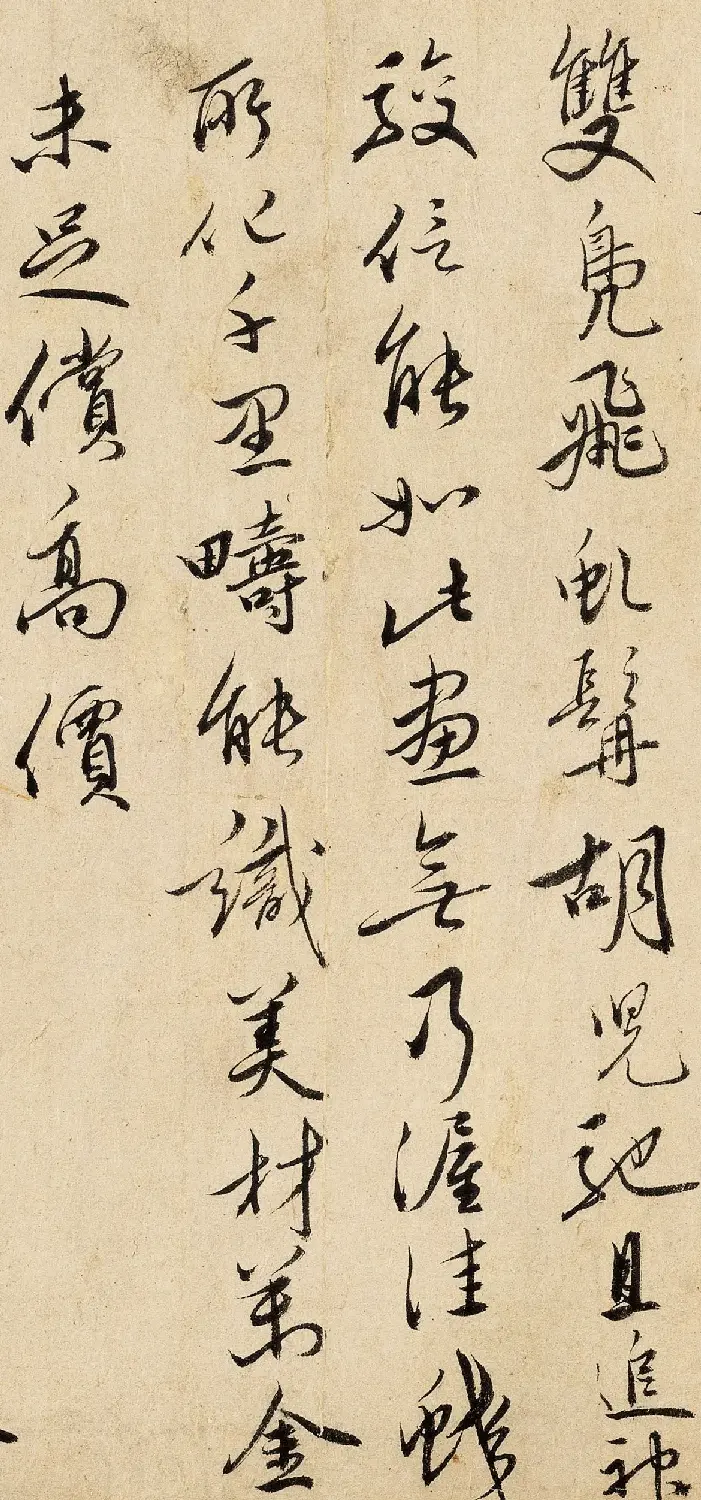 雙鳧飛虬髯胡兒馳且追神
駿信能如此畫無乃渥洼龍
所化千里疇能識美材萬金
未足償高價